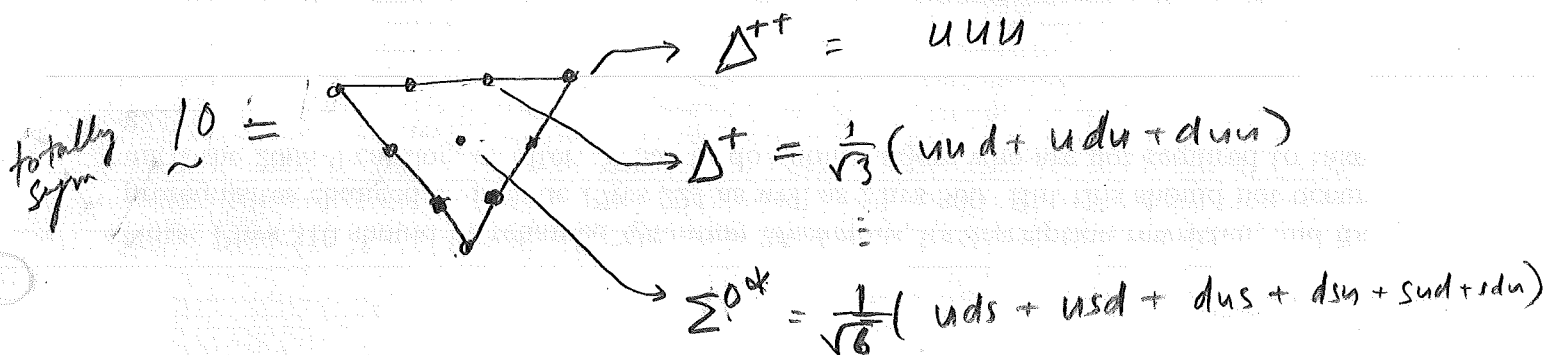 Δ⁺⁺ = uuu
totally sym 10 =
Δ⁺ = 1/√3 (uud + udu + duu)
⋮
Σ⁰* = 1/√6 ( uds + usd + dus + dsu + sud + sdu)